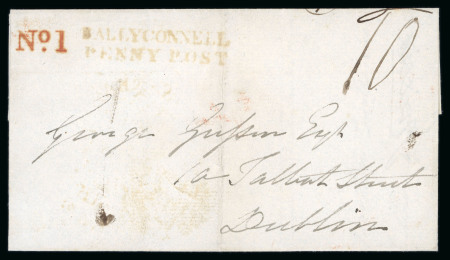 No. 1
BALLYCONNELL
PENNY POST
10
George Esqr
10 Talbot Street
Dublin